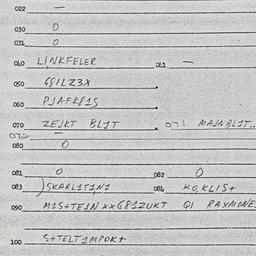 022 —
030 O
031 O
040 LINKFELER 041 —
050 6SILZ3X
060 PJAFK81S
070 ZEJKT BL1T 071 MAJNBL1T..
072 —
080 O
081 O 082 O
083 )SKARL1T1N1 084 KO,KLIS+
090 M1S+TEJN XXG81ZUKT QI RAYMONE
100 S+TELT1MPOK+